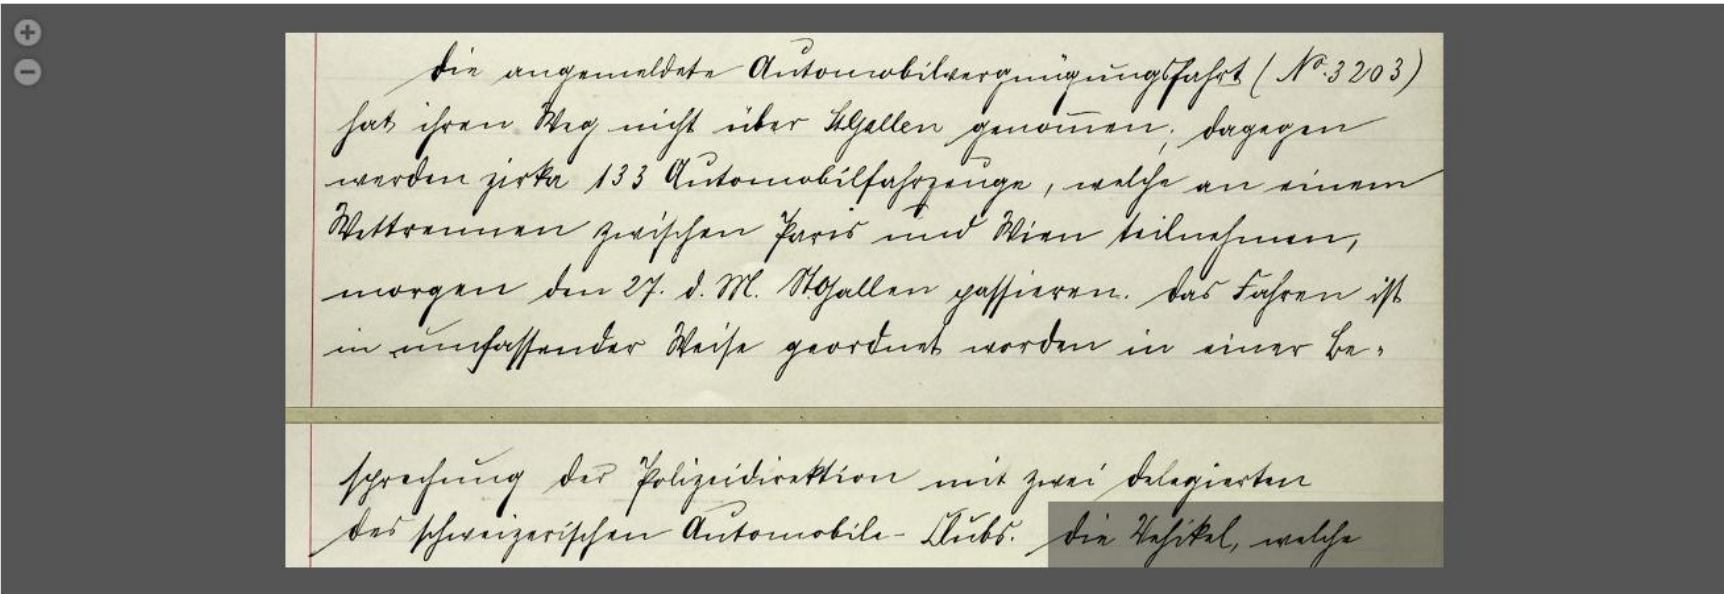 Die angemeldete Automobilvergnügungsfahrt (No. 3203)
hat ihren Weg nicht über St.Gallen genom̄en; dagegen
werden zirka 133 Automobilfahrzeuge, welche an einem
Wettrennen zwischen Paris und Wien teilnehmen,
morgen den 27. d. M. St.Gallen passieren. Das Fahren ist
in umfassender Weise geordnet worden in einer Be-
sprechung der Polizeidirektion mit zwei Delegierten
des schweizerischen Automobile-Clubs. Die Vehikel, welche